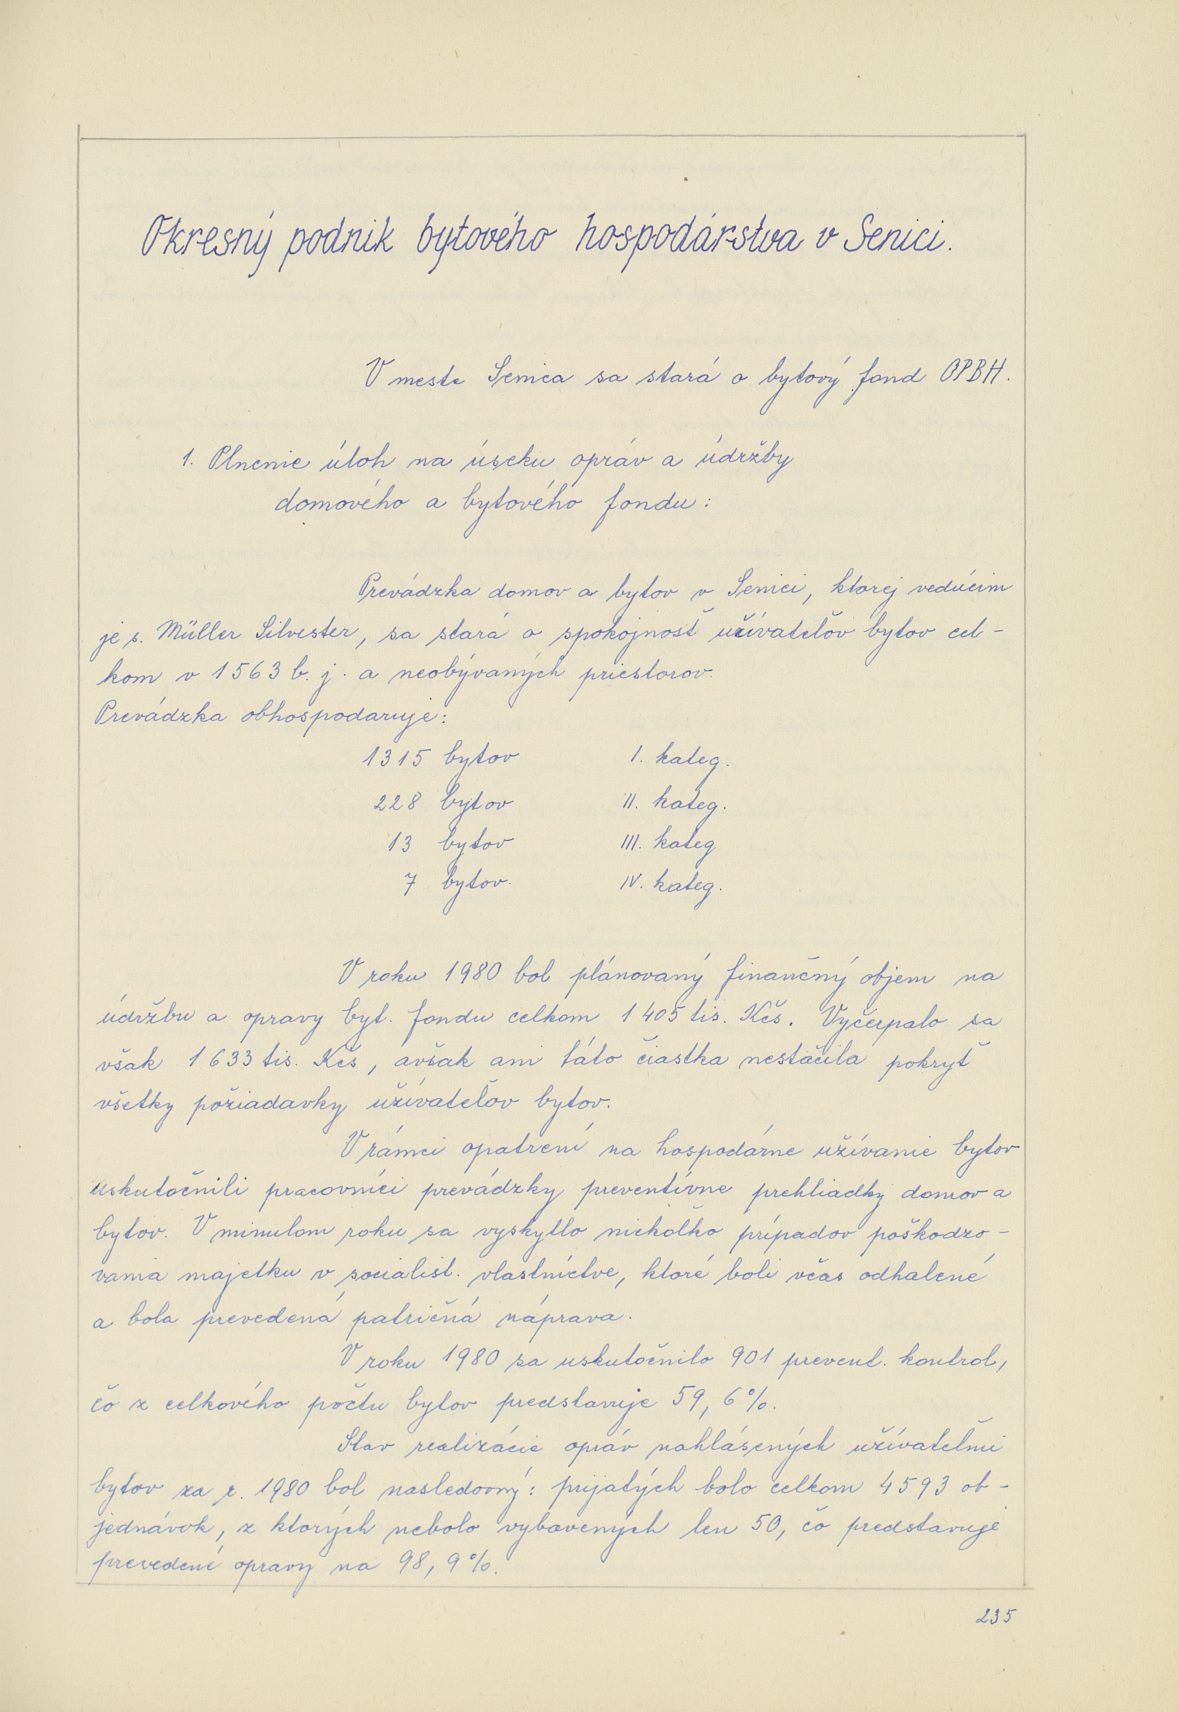 Okresný podnik bytového hospodárstva v Senici.
V meste Senica sa stará o bytový fond OPBH.
1. Plnenie úloh na úseku opráv a údržby
domového a bytového fondu:
Prevádzka domov a bytov v Senici, ktorej vedúcim
je s. Müller Silvester, sa stará o spokojnosť užívateľov bytov cel-
kom v 1563 b. j. a neobývaných priestorov.
Prevádzka obhospodaruje:
1315 bytov I. kateg.
228 bytov II. kateg.
13 bytov III. kateg
7 bytov IV. kateg.
V roku 1980 bol plánovaný finančný objem na
údržbu a opravy byt. fondu celkom 1 405 tis. Kčs. Vyčerpalo sa
však 1 633 tis. Kčs, avšak ani táto čiastka nestačila pokryť
všetky požiadavky užívateľov bytov.
V rámci opatrení na hospodárne užívanie bytov
uskutočnili pracovníci prevádzky preventívne prehliadky domov a
bytov. V minulom roku sa vyskytlo niekoľko prípadov poškodzo-
vania majetku v socialist. vlastníctve, ktoré boli včas odhalené
a bola prevedená patričná náprava.
V roku 1980 sa uskutočnilo 901 prevent. kontrol,
čo z celkového počtu bytov predstavuje 59,6%.
Stav realizácie opráv nahlásených užívateľmi
bytov za r. 1980 bol nasledovný: prijatých bolo celkom 4593 ob-
jednávok, z ktorých nebolo vybavených len 50, čo predstavuje
prevedené opravy na 98,9%.
235